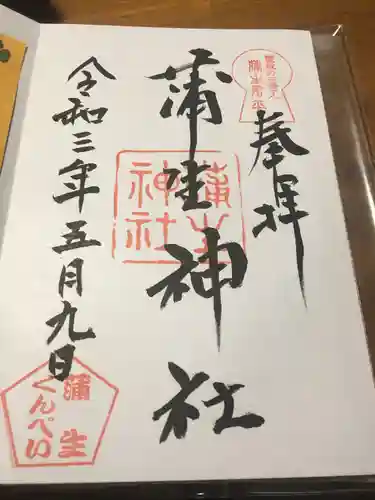 奉拝
蒲生神社
蒲生神社
令和三年五月九日
蒲生
くんぺい